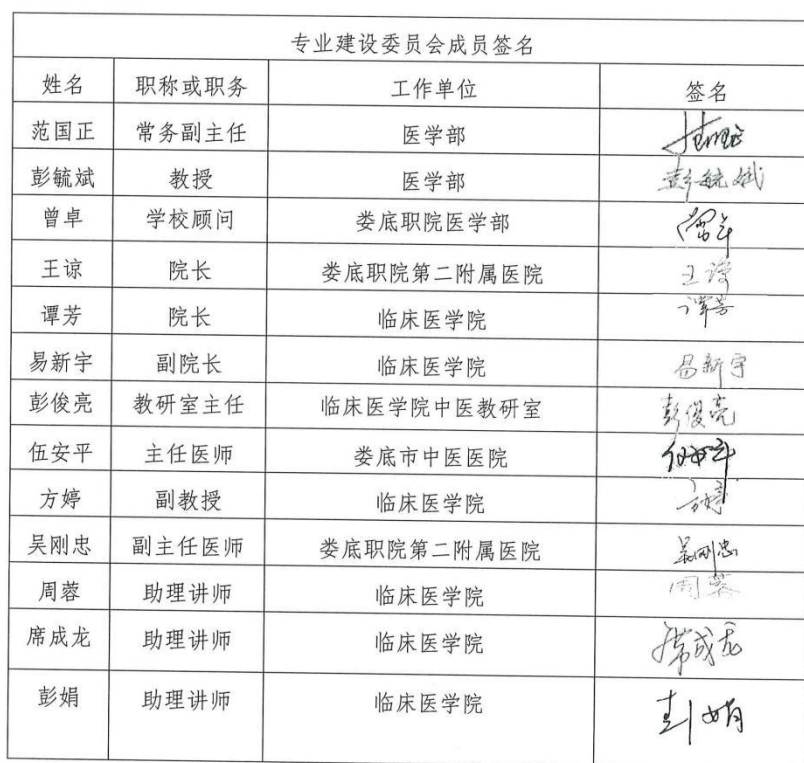 专业建设委员会成员签名
姓名 职称或职务 工作单位 签名
范国正 常务副主任 医学部
彭毓斌 教授 医学部 彭毓斌
曾卓 学校顾问 娄底职院医学部 曾卓
王谅 院长 娄底职院第二附属医院 王谅
谭芳 院长 临床医学院 谭芳
易新宇 副院长 临床医学院 易新宇
彭俊亮 教研室主任 临床医学院中医教研室 彭俊亮
伍安平 主任医师 娄底市中医医院 伍安平
方婷 副教授 临床医学院 方婷
吴刚忠 副主任医师 娄底职院第二附属医院 吴刚忠
周蓉 助理讲师 临床医学院 周蓉
席成龙 助理讲师 临床医学院 席成龙
彭娟 助理讲师 临床医学院 彭娟